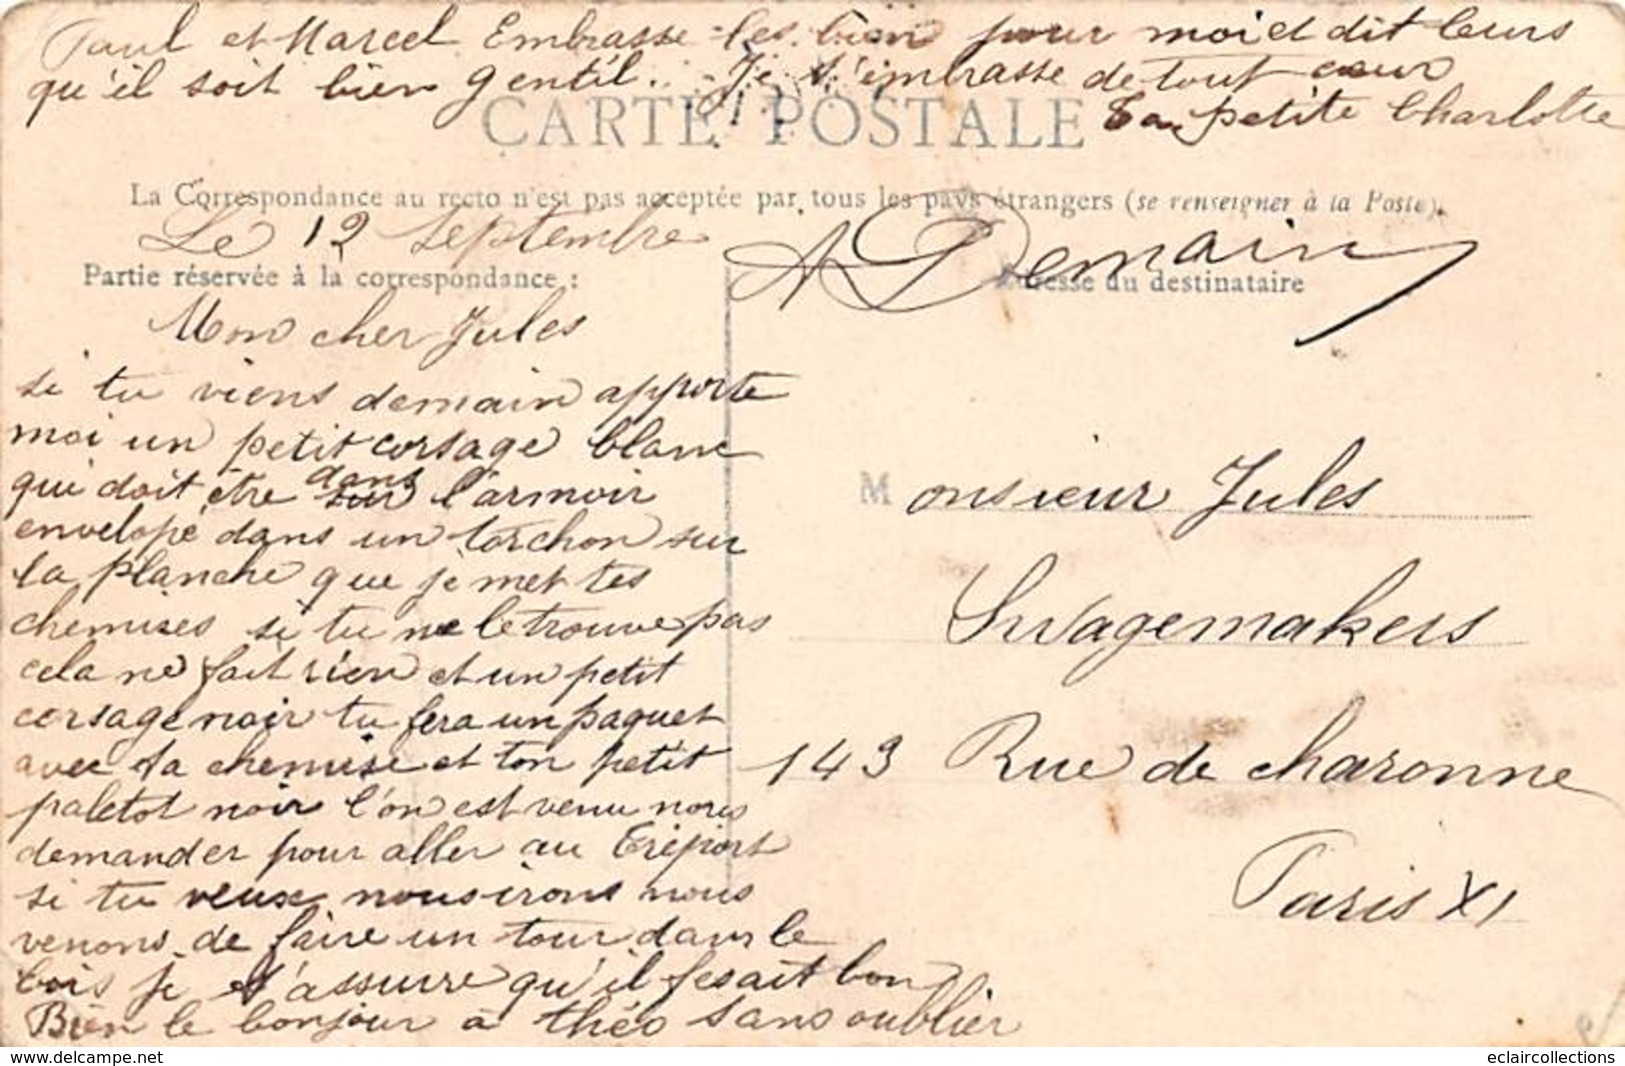 Paul et Marcel Embrasse-les bien pour moi et dit leurs
qu'il soit bien gentil. Je t'embrasse de tout cœur
Ta petite Charlotte
CARTE POSTALE
La Correspondance au recto n'est pas acceptée par tous les pays étrangers (se renseigner à la Poste).
Le 12 Septembre
A Demain
Partie réservée à la correspondance :
Adresse du destinataire
Mon cher Jules
si tu viens demain apporte
moi un petit corsage blanc
qui doit être dans l'armoir
envelopé dans un torchon sur
la planche que je met tes
chemises si tu ne le trouve pas
cela ne fait rien et un petit
corsage noir tu fera un paquet
avec ta chemise et ton petit
paletot noir l'on est venu nous
demander pour aller au Tréport
si tu veux nous irons nous
venons de faire un tour dans le
bois je t'assure qu'il fesait bon
Bien le bonjour à théo sans oublier
Monsieur Jules
Swagemakers
143 Rue de charonne
Paris XI
www.delcampe.net
eclaircollections